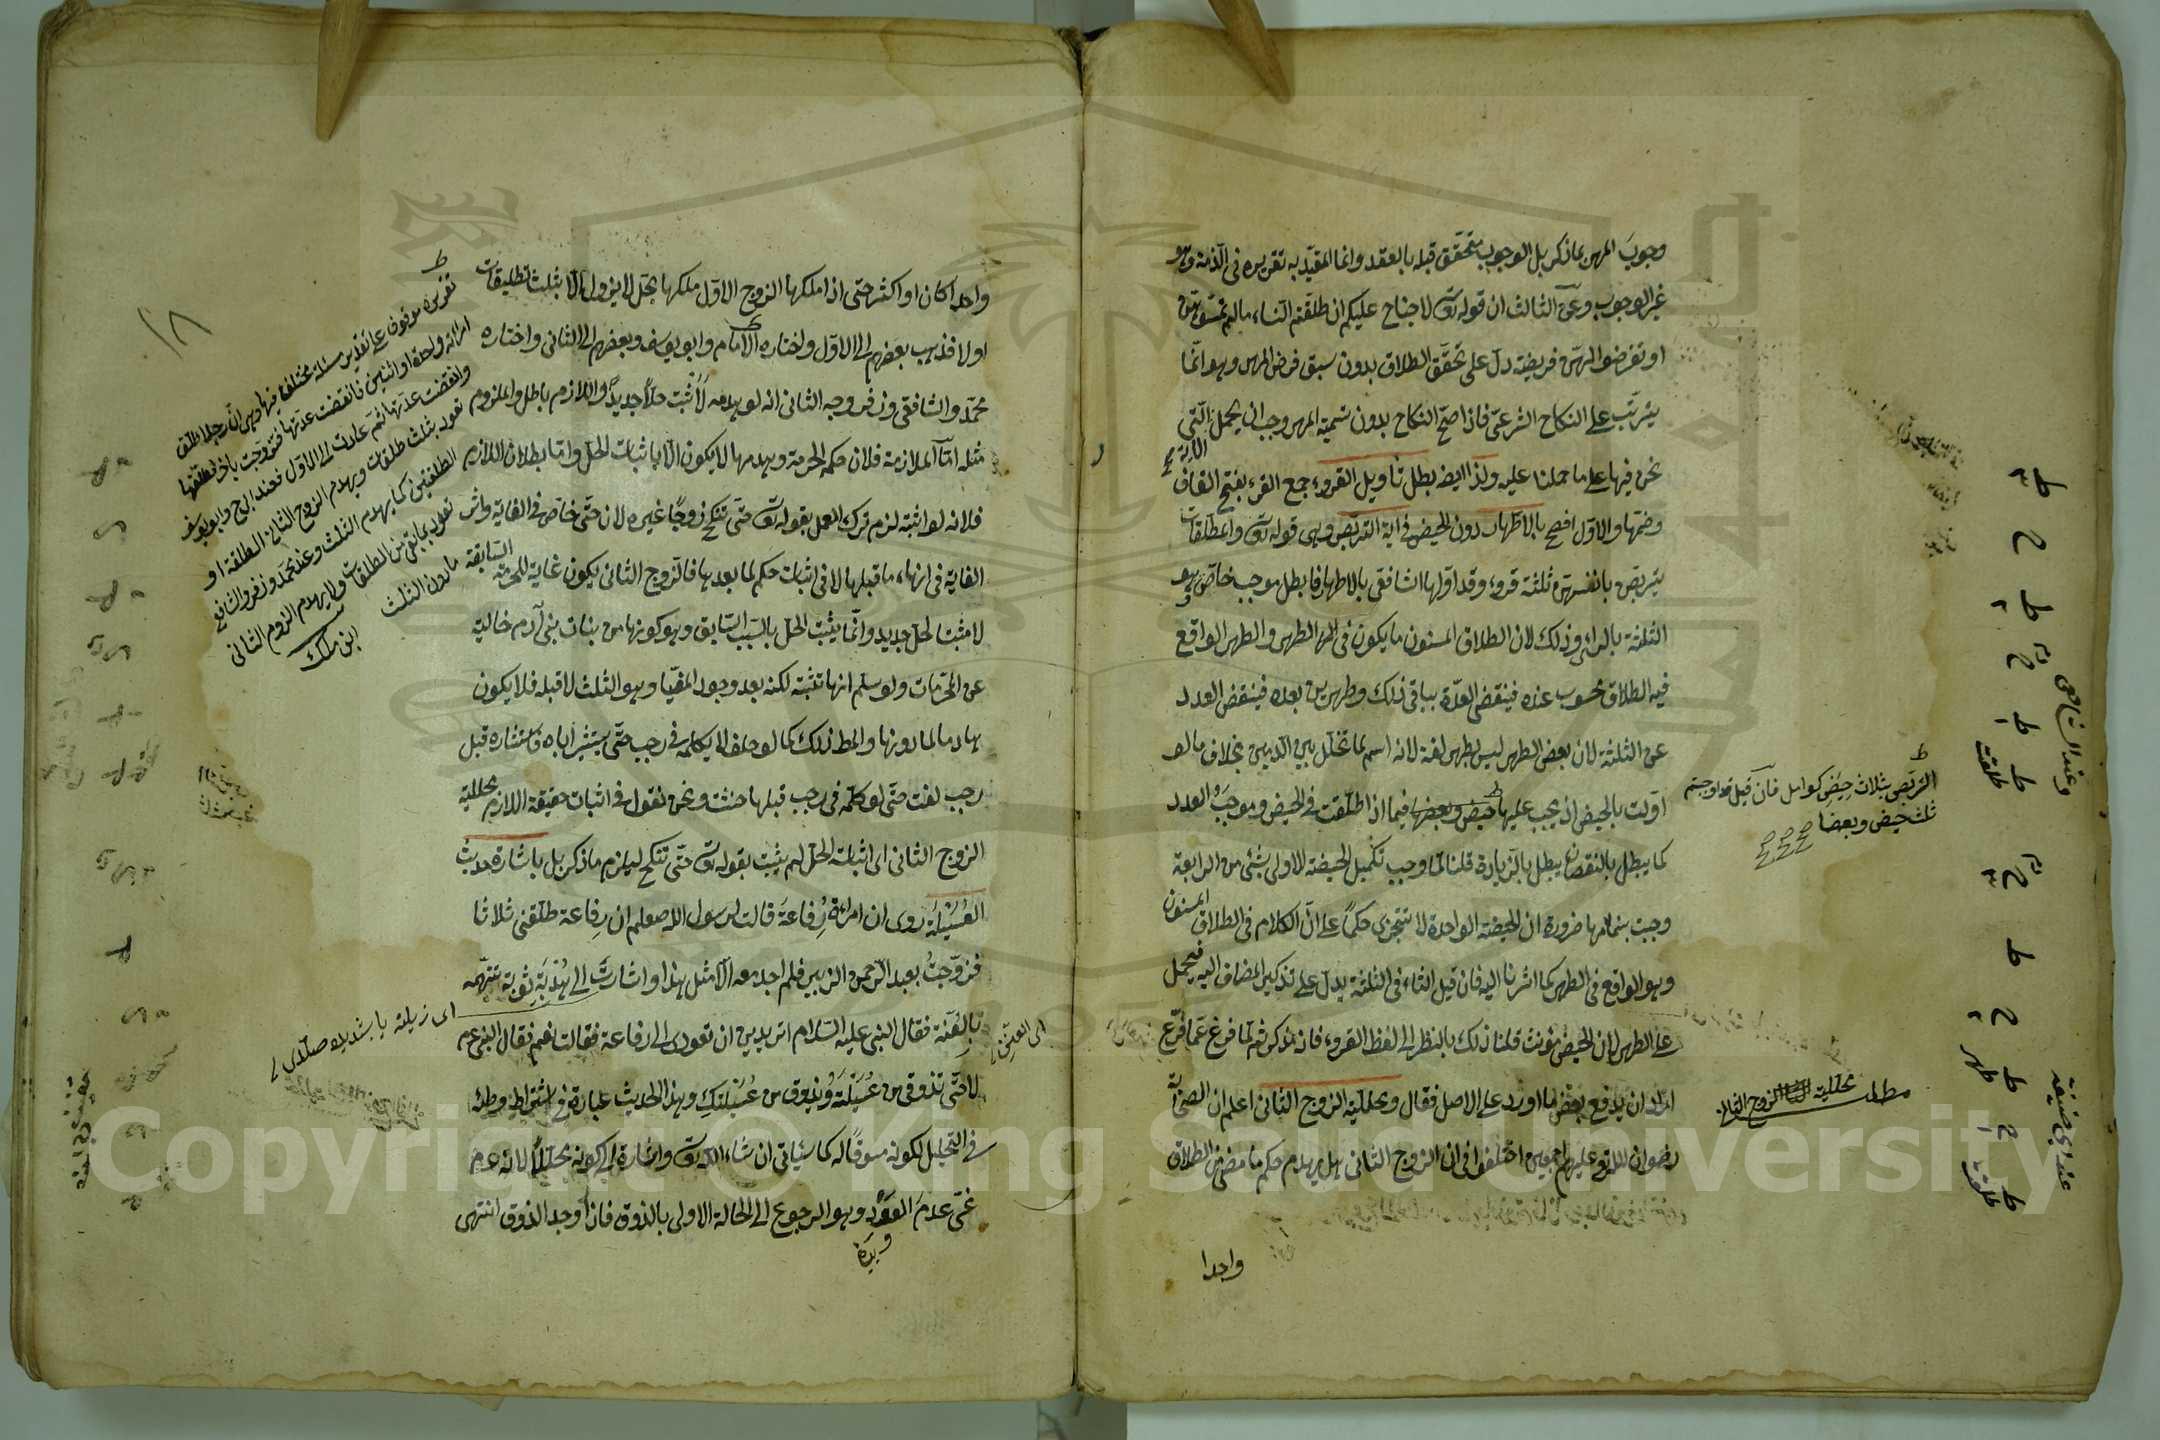 وجوبَ المهر بما ذكر بل الوجوب متحقق قبله بالعقد وانما المقيد به تقريره في الذمة وهو
غير الوجوب وعن الثالث ان قوله تع لا جناح عليكم ان طلقتم النساء ما لم تمسوهن
او تفرضوا لهن فريضة دل على تحقق الطلاق بدون سبق فرض المهر وهو انما
يترتب على النكاح الشرعي فاذا صح النكاح بدون تسمية المهر وجب ان يحمل التي
نحن فيها على ما حملنا عليه ولذا ايضا بطل تاويل القروء جمع القرء بفتح القاف
وضمها والاول افصح بالاطهار دون الحيض في اية التربص وهي قوله تع والمطلقات
يتربصن بانفسهن ثلثة قروء وقد اولها الشافعي بالاطهار فابطل موجب خاص وهو
الثلثة بالراي وذلك لان الطلاق المسنون ما يكون في الطهر والطهر الواقع
فيه الطلاق محسوب عنده فينقض العدة بباقي ذلك وطهرين بعده فينقض العدد
عن الثلثة لان بعض الطهر ليس بطهر لغة لانه اسم لما تخلل بين الدمين بخلاف ما لو
اولت بالحيض اذ يجب عليها حيض وبعضها فيما اذا طلقت في الحيض وموجب العدد
كما يبطل بالنقصان يبطل بالزيادة قلنا لما وجب تكميل الحيضة الاولى بشئ من الرابعة
وجبت بتمامها ضرورة ان الحيضة الواحدة لا تتجزى حكماً على ان الكلام في الطلاق المسنون
وهو الواقع في الطهر كما اشرنا اليه فان قيل التاء في الثلثة يدل على تذكير المضاف اليه فيحمل
على الطهر لان الحيض مؤنث قلنا ذلك بالنظر الى لفظ القروء فانه مذكر ثم لما فرغ عما فرع
اراد ان يدفع بعض ما اورد على الاصل فقال ومحللية الزوج الثاني اعلم ان الصحابة
رضوان الله تع عليهم اجمعين اختلفوا في ان الزوج الثاني هل يهدم حكم ما مضى من الطلاق
واحدا
التربص بثلاث حيض كوامل فان قيل قد اوجبتم
ثلث حيض وبعضا
مطلب محللية الزوج الثاني
وعند الشافعي
عند ابي حنيفة
واحدا كان او اكثر حتى اذا ملكها الزوج الاول ملكها بحل لا يزول الا بثلث تطليقات
اولا فذهب بعضهم الى الاول واختاره الامام وابو يوسف وبعضهم الى الثاني واختاره
محمد والشافعي وزفر وجه الثاني انه لو يهدمه لاثبت حلاً جديداً واللازم باطل والملزوم
مثله اما الملازمة فلان حكمه الحرمة وهدمها لا يكون الا باثبات الحل واما بطلان اللازم
فلانه لو اثبته لزم ترك العمل بقوله تع حتى تنكح زوجًا غيره لان حتى خاص في الغاية واثر
الغاية في انهاء ما قبلها لا في اثبات حكم لما بعدها فالزوج الثاني يكون غاية للحرمة السابقة
لا مثبتا لحل جديد وانما يثبت الحل بالسبب السابق وهو كونها من بنات بني آدم خالية
عن المحرمات ولو سلم انها تثبته لكنه بعد وجود المغيا وهو الثلث لا قبله فلا يكون
هادما لما دونها والمط ذلك كما لو حلف لا يكلمه في رجب حتى يستشير اباه فاستشاره قبل
رجب لغت حتى لو كلمه في رجب قبلها حنث ونحن نقول في اثبات حقيقة اللازم محللية
الزوج الثاني اي اثباته الحل لم يثبت بقوله تع حتى تنكح ليلزم ما ذكر بل باشارة حديث
العُسَيْلَة روى ان امراة رِفاعَة قالت لرسول الله صلعم ان رفاعة طلقني ثلاثا
فتزوجتُ بعبد الرحمن الزبير فلم اجد معه الا مثل هذا واشارت الى هُدْبَةِ ثوبه تتهمه
بالعنة فقال النبي عليه السلام اتريدين ان تعودي الى رفاعة فقالت نعم فقال النبي عم
لا حتى تذوقي من عُسَيْلَته ويذوق من عُسَيْلتك وهذا الحديث عبارة في اشتراط وطئه
في التحليل لكونه مسوقًا له كما سياتي ان شاء الله تع واشارة الى كونه محللاً لانه عم
غيى عدمَ العَوْد وهو الرجوع الى الحالة الاولى بالذوق فاذا وجد الذوق انتهى
١٨
تقريره موقوف على تقديم مسئلة مختلف فيها وهي ان رجلا طلق
امراته واحدة او اثنتين فانقضت عدتها فتزوجت باخر فطلقها
وانقضت عدتها ثم عادت الى الاول فعند ابي ح وابي يوسف
تعود بثلث طلقات ويهدم الزوج الثاني الطلقة او
الطلقتين كما يهدم الثلث وعند محمد وزفر والشافعي
تعود بما بقي من الطلقات ولا يهدم الزوج الثاني
ما دون الثلث
ابن ملك
Copyright © King Saud University